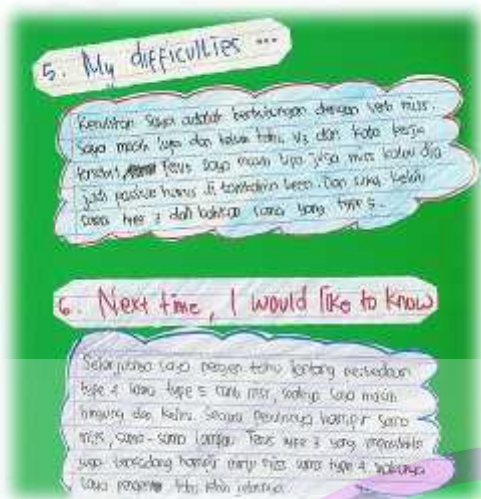 5. My difficulties ...
Kesulitan saya adalah berhubungan dengan verb miss.
Saya masih lupa dan belum tahu V3 dari kata kerja
tersebut, Terus saya masih lupa juga miss kalau dia
jadi passive harus di tambahin been. Dan suka keliru
sama type 3 dan bahkan sama yang type 5.
6. Next time, I would like to know
Selanjutnya saya pengen tahu tentang perbedaan
type 4 sama type 5 miss, soalnya saya masih
bingung dan keliru. Secara hampir sama
miss, sama-sama lampau. Terus type 3 yang
juga hampir mirip miss sama type 4, makanya
saya pengen tahu lebih jelasnya.